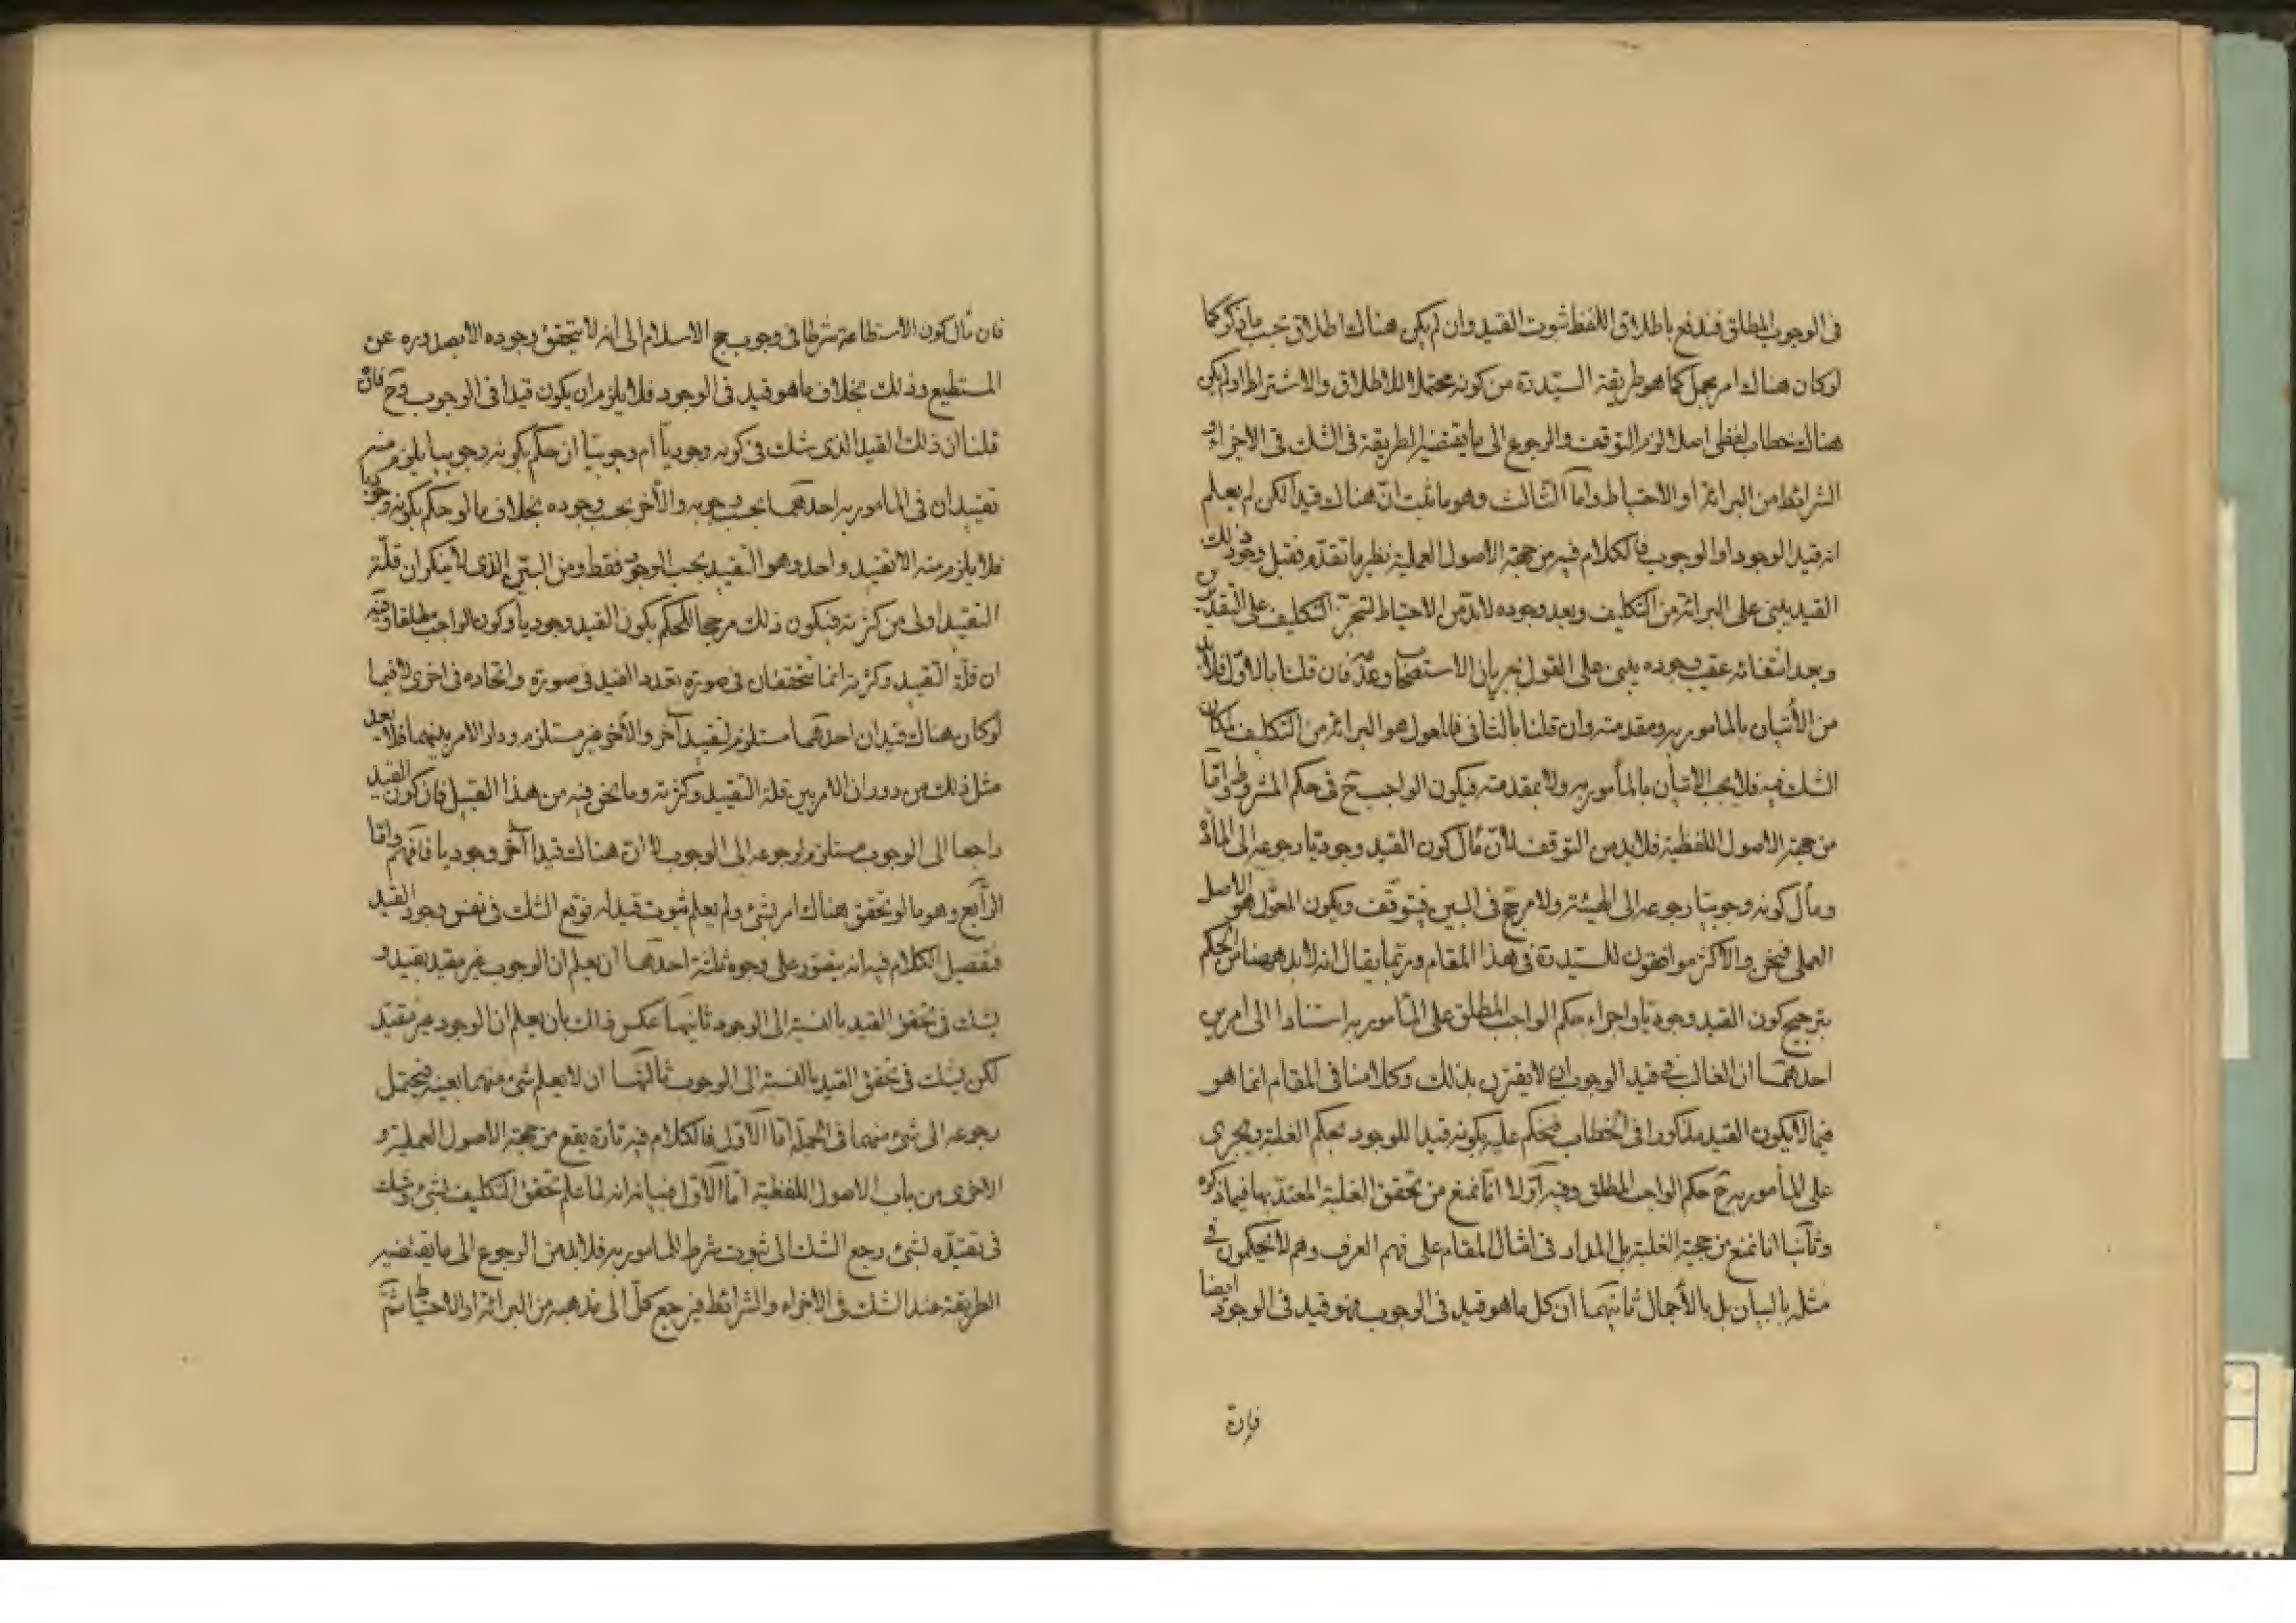 فى الوجوب المطلق فندفع باطلاق اللفظ ثبوت القيد وان لم يكن هناك اطلاق نجب ما ذكر كما
لو كان هناك امر مجمل كما هو طريقة السيّد ره من كونه محتملا للاطلاق والاشتراط او لم يكن
هناك خطاب لفظى اصلا لزم التوقف والرجوع الى ما يقتضيه الطريقة فى الشك فى الاجزاء و
الشرائط من البرائة او الاحتياط واما الثالث وهو ما ثبت انّ هناك قيدا لكن لم يعلم
انه قيد الوجود او الوجوب فالكلام فيه من جهة الاصول العملية نظير ما تقدّم فقبل وجود ذلك
القيد يبنى على البرائة من التكليف وبعد وجوده لا بدّ من الاحتياط لتنجز التكليف على التقديرين
وبعد انتفائه عقيب وجوده يبنى على القول بجريان الاستصحاب وعدمه فان قلنا بالاوّل فلا بد
من الأتيان بالمامور به ومقدمته وان قلنا بالثانى فالمعول هو البرائة من التكليف لمكان
الشك فيه فلا يجب الاتيان بالمأمور به ولا بمقدمته فيكون الواجب ح فى حكم المشروط وامّا
من جهة الاصول اللفظية فلا بد من التوقف لأنّ مآل كون القيد وجوديّا رجوعه الى المادّة
ومآل كونه وجوبيّا رجوعه الى الهيئة ولا مرجّح فى البين فيتوقّف ويكون المعوّل هو الاصل
العملى فنحن والاكثر موافقون للسيّد ره فى هذا المقام وربّما يقال انه لا بد ههنا من الحكم
بترجيح كون القيد وجوديّا واجراء حكم الواجب المطلق على المأمور به استنادا الى امرين
احدهما ان الغالب فى قيد الوجوب ان لا يقترن بذلك وكلامنا فى المقام انما هو
فيما لا يكون القيد مذكورا فى الخطاب فيحكم عليه بكونه قيدا للوجود بحكم الغلبة ويجرى
على المأمور به ح حكم الواجب المطلق وفيه اوّلا انّا نمنع من تحقق الغلبة المعتدّ بها فيما ذكره
وثانيا انا نمنع من حجية الغلبة بل المدار فى امثال المقام على فهم العرف وهم لا يحكمون فى
مثله بالبيان بل بالأجمال ثانيهما ان كل ما هو قيد فى الوجوب فهو قيد فى الوجود ايضا
فان
فان مآل كون الاستطاعة شرطا فى وجوب حج الاسلام الى انه لا يتحقق وجوده الا بصدوره عن
المستطيع وذلك بخلاف ما هو قيد فى الوجود فلا يلزم ان يكون قيدا فى الوجوب وح فان
قلنا ان ذلك القيد الذى شك فى كونه وجوديّا ام وجوبيّا ان حكم بكونه وجوبيا يلزم منه
تقييدان فى المامور به احدهما بحسب وجوبه والأخر بحسب وجوده بخلاف ما لو حكم بكونه وجوديا
فلا يلزم منه الا تقييد واحد وهو التقييد بحسب الوجود فقط ومن البيّن الذى لا ينكر ان قلّة
التقييد اولى من كثرته فيكون ذلك مرجحا للحكم بكون القيد وجوديا وكون الواجب مطلقا وفيه
ان قلّة التقييد وكثرته انما تتحققان فى صورة تعدد القيد فى صورة واتحاده فى اخرى لا فيما
لو كان هناك قيدان احدهما مستلزم لقيد آخر والأخر غير مستلزم ودار الامر بينهما فلا يعد
مثل ذلك من دوران الامر بين قلة التقييد وكثرته وما نحن فيه من هذا القبيل فان كون القيد
راجعا الى الوجوب مستلزم لرجوعه الى الوجوب لا ان هناك قيدا آخر وجوديا فافهم وامّا
الرّابع وهو ما لو تحقق هناك امر بشئ ولم يعلم ثبوت قيد له فوقع الشك فى نفس وجود القيد
فتفصيل الكلام فيه انه يتصوّر على وجوه ثلثة احدها ان يعلم ان الوجوب غير مقيد بقيد و
يشك فى تحقق القيد بالنسبة الى الوجود ثانيهما عكس ذلك بان يعلم ان الوجود غير مقيّد
لكن يشك فى تحقق القيد بالنسبة الى الوجوب ثالثها ان لا يعلم شئ منهما بعينه فيحتمل
رجوعه الى شئ منهما فى الجملة امّا الاوّل فالكلام فيه تارة يقع من جهة الاصول العملية و
الاخرى من باب الاصول اللفظية امّا الاوّل فبيانه انه لما علم تحقق التكليف بشئ وشك
فى تقيّده بشئ رجع الشك الى ثبوت شرط للمامور به فلا بد من الرجوع الى ما يقتضيه
الطريقة عند الشك فى الاجزاء والشرائط فيرجع كلّ الى مذهبه من البرائة او الاحتياط ثمّ